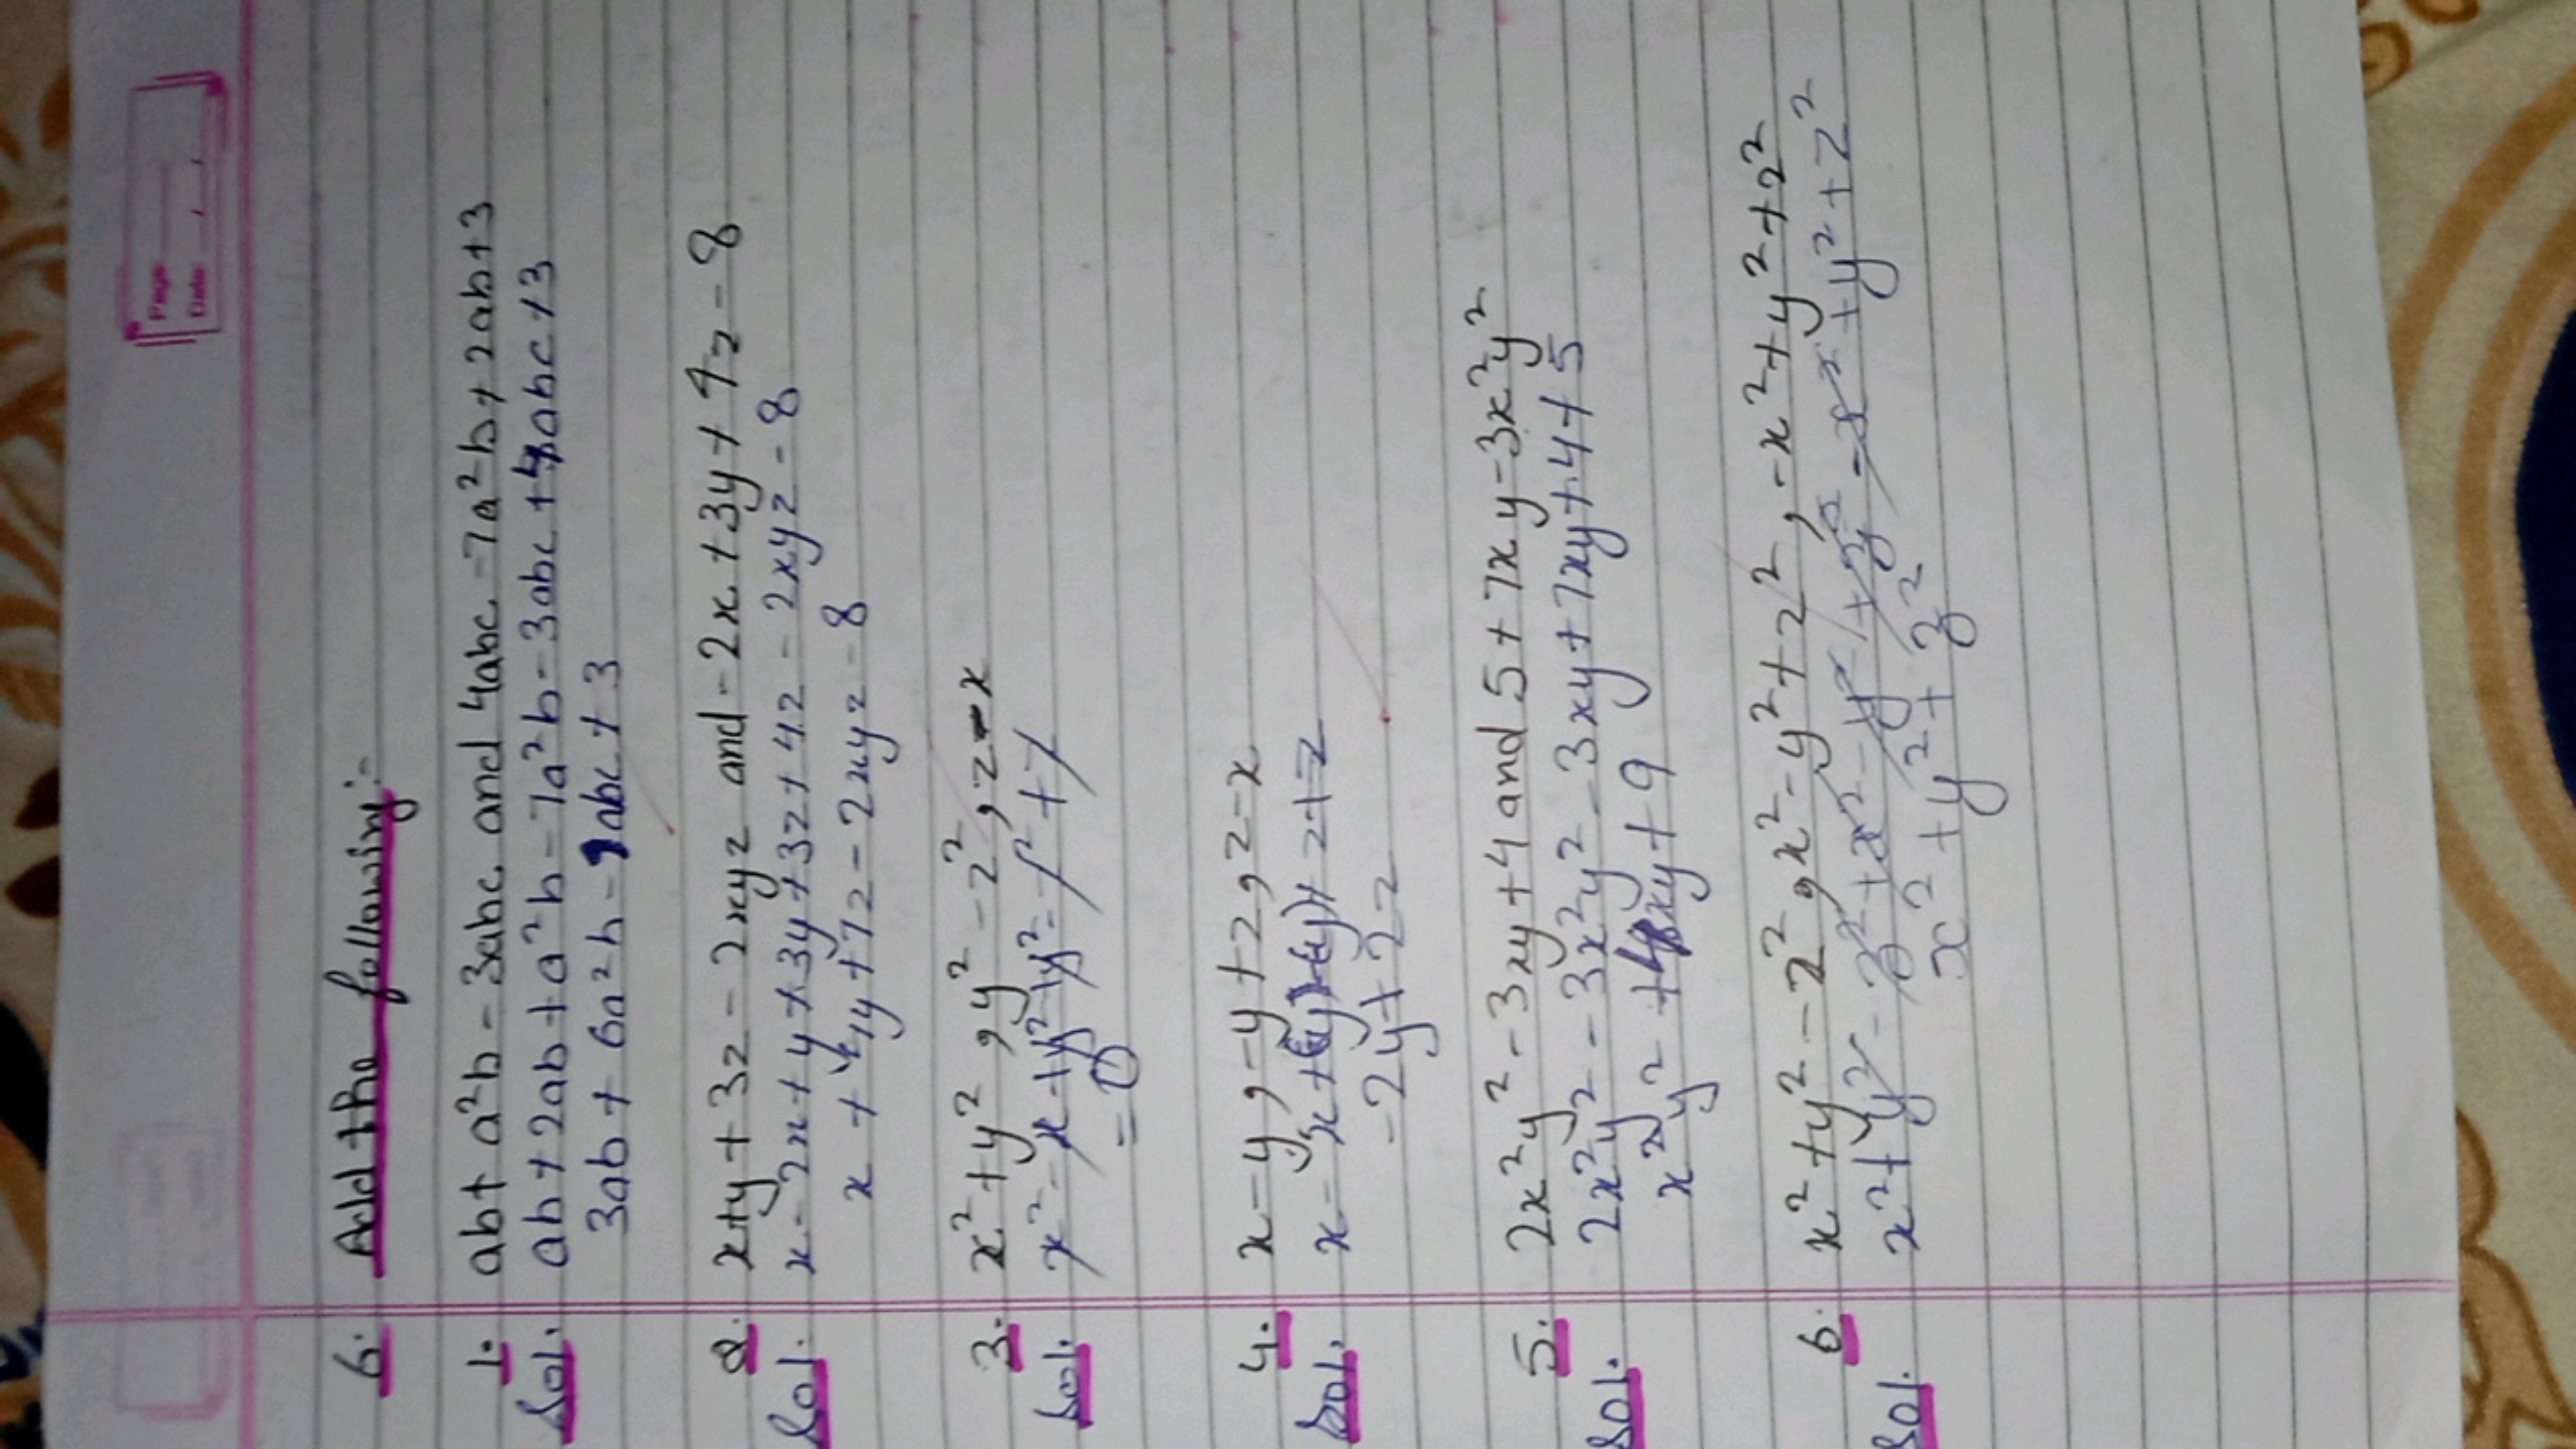 Page
Date / /
6. Add the following:-
1. ab + a²b - 3abc and 4abc - 7a²b + 2ab + 3
Sol. ab + 2ab + a²b - 7a²b - 3abc + 4abc + 3
3ab + 6a²b - abc + 3
2. x+y + 3z - 2xyz and -2x + 3y + 4z - 8
Sol. x - 2x + y + 3y + 3z + 4z - 2xyz - 8
x + 4y + 7z - 2xyz - 8
3. x² + y², y² - z², z - x
Sol.
= 0
4. x - y, -y + z, z - x
Sol.
-2y + 2z
5. 2x²y² - 3xy + 4 and 5 + 7xy - 3x²y²
Sol. 2x²y² - 3x²y² - 3xy + 7xy + 4 + 5
x²y² + 4xy + 9
6. x² + y² - z², x² - y² + z², -x² + y² + z²
Sol. x² + y² - z² + x² - y² + z² - x² + y² + z²
x² + y² + z²